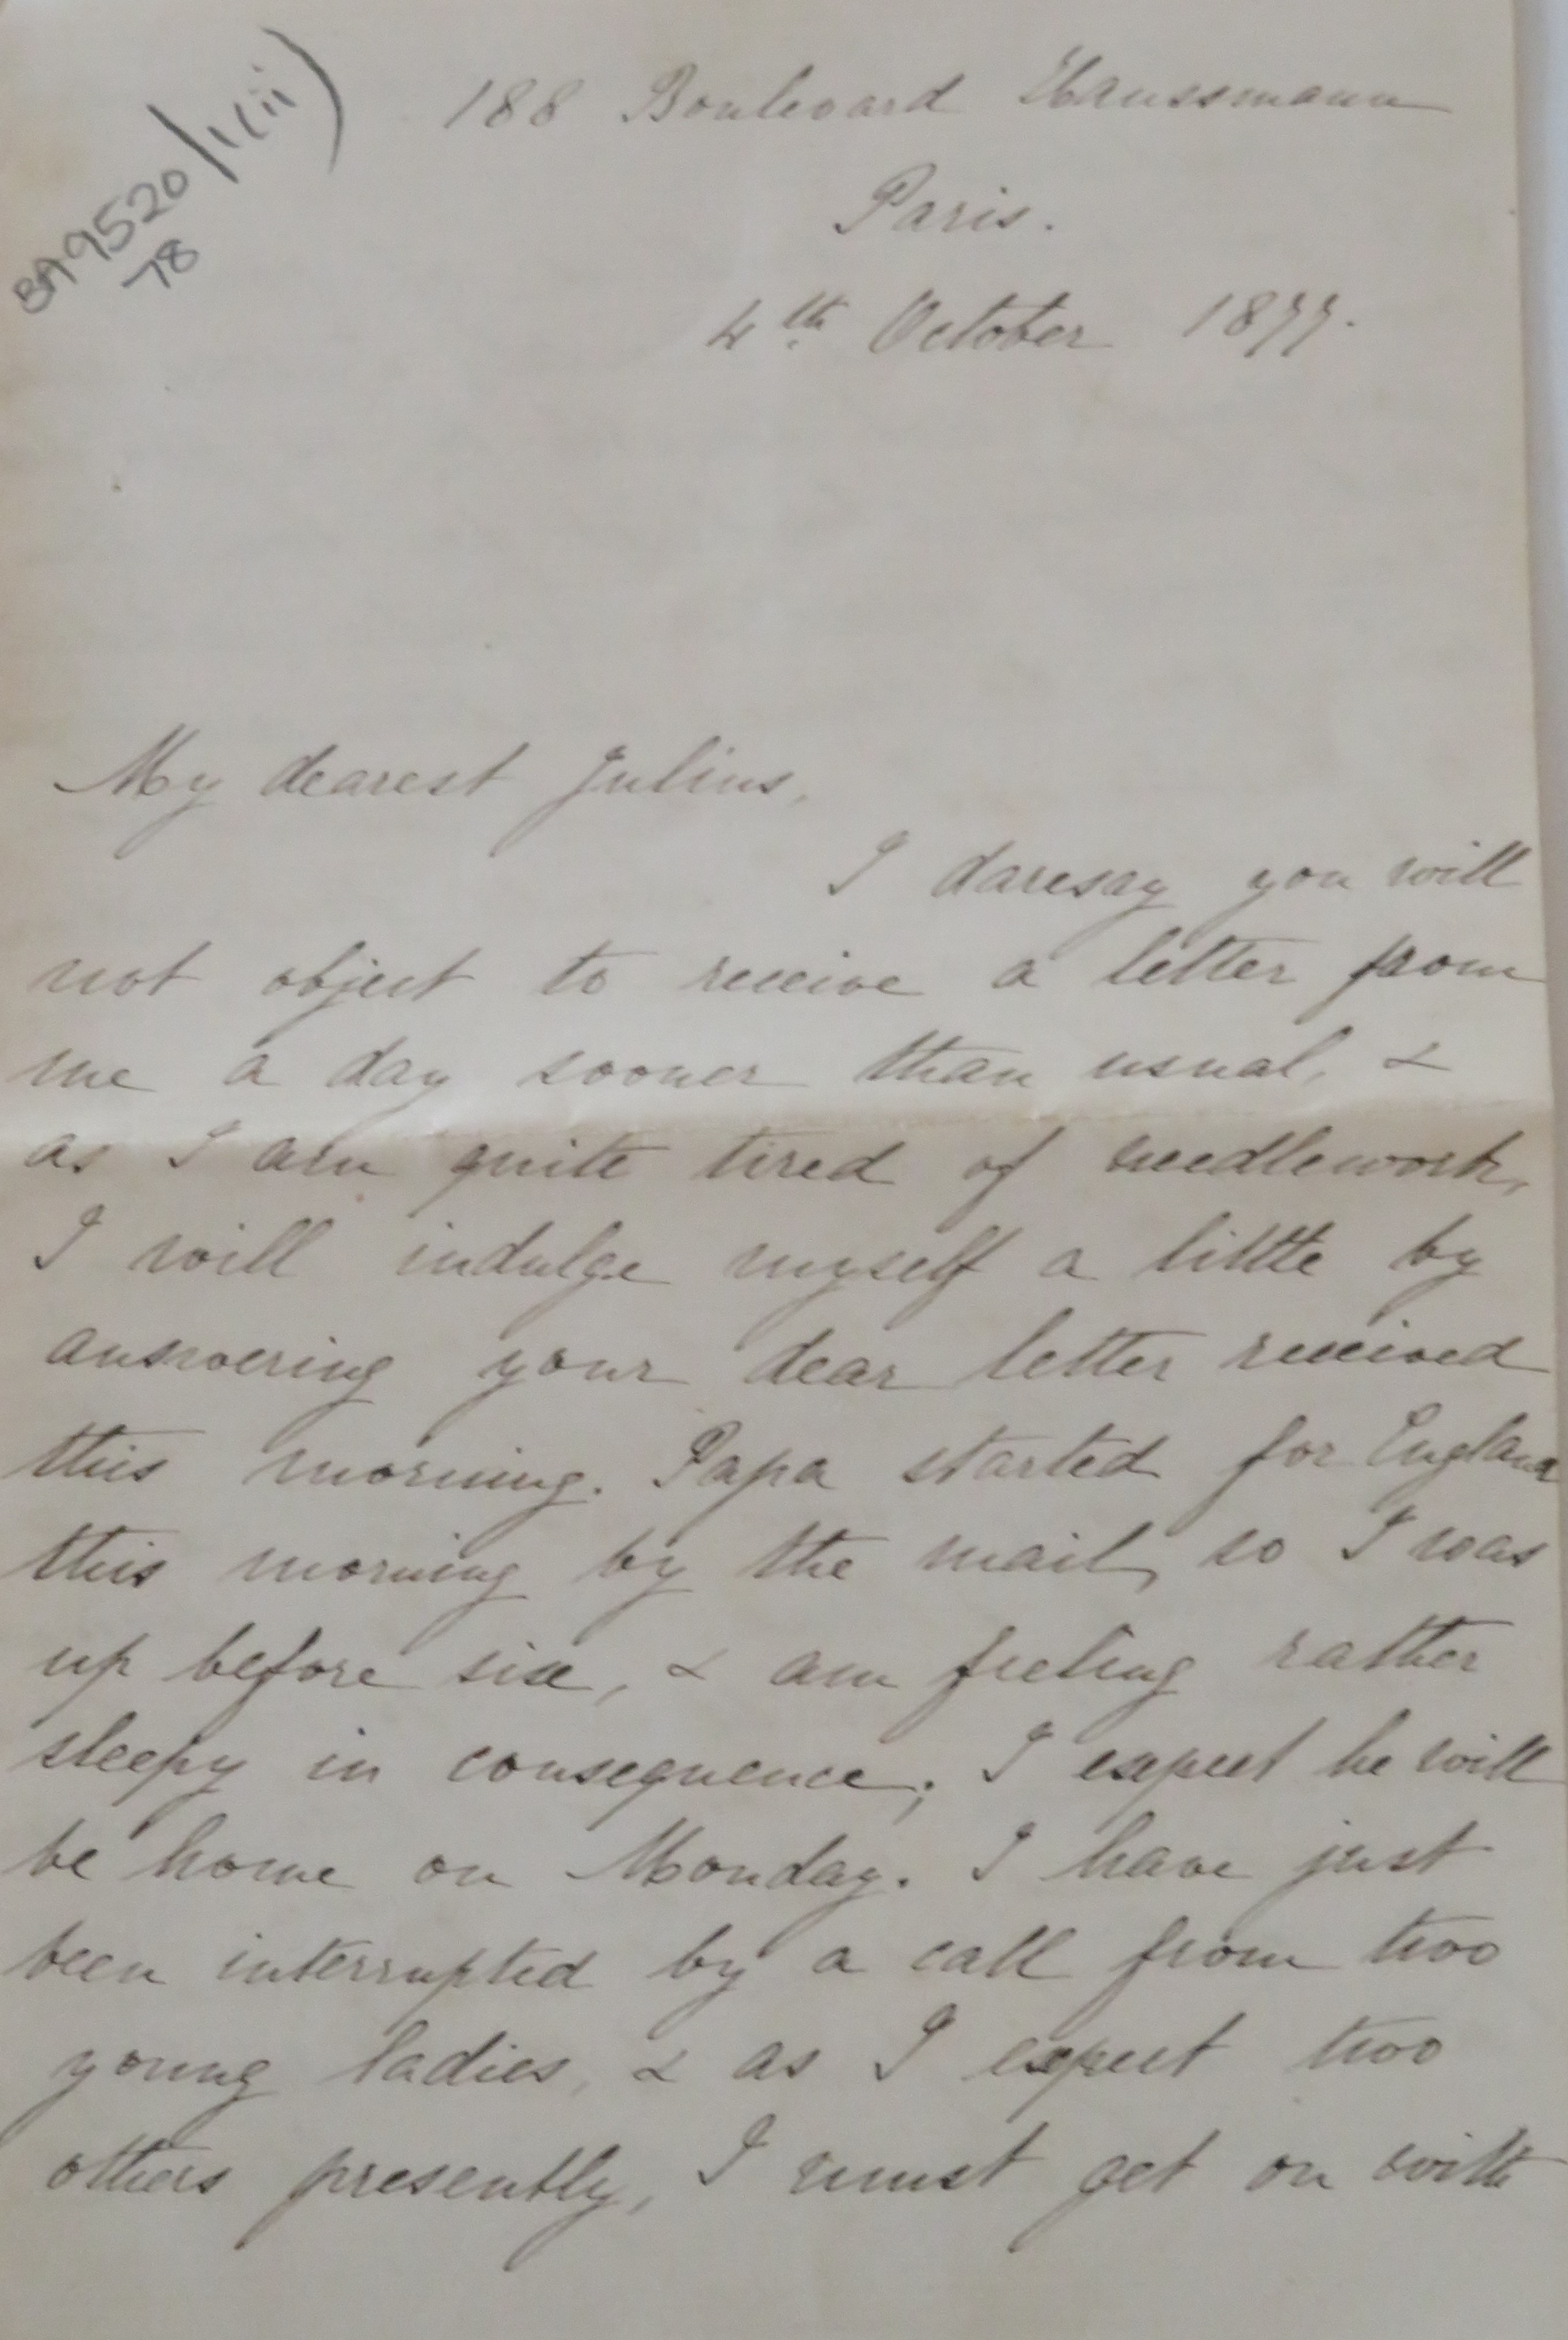 BA9520/1(iii)
78
188 Boulevard Haussmann
Paris.
4th October 1877.
My dearest Julius,
I daresay you will
not object to receive a letter from
me a day sooner than usual, &
as I am quite tired of needlework,
I will indulge myself a little by
answering your dear letter received
this morning. Papa started for England
this morning by the mail, so I was
up before six, & am feeling rather
sleepy in consequence; I expect he will
be home on Monday. I have just
been interrupted by a call from two
young ladies, & as I expect two
others presently, I must get on with